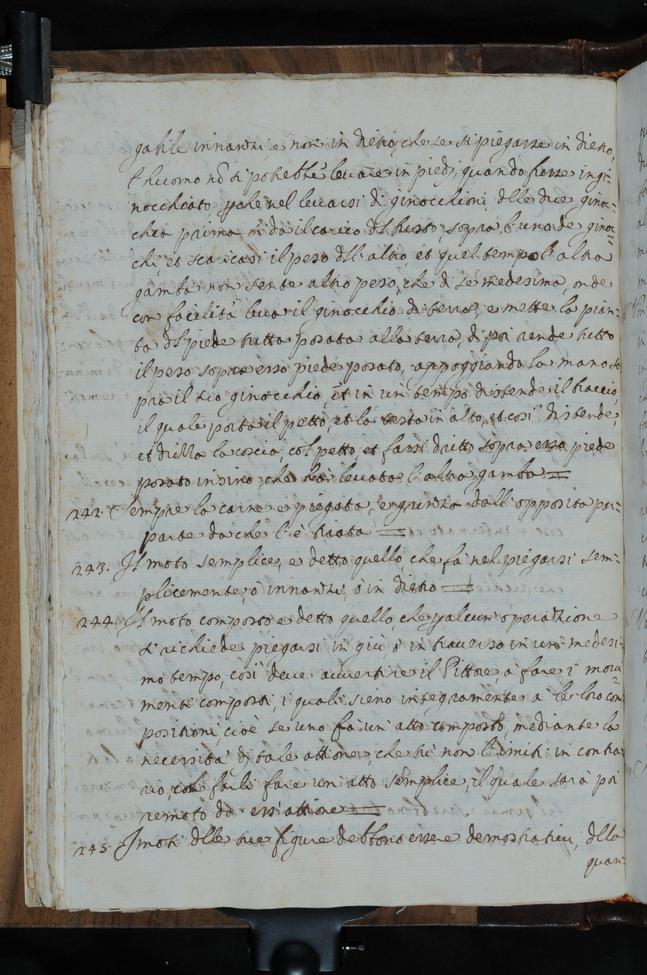 gabile innanzi e non in dietro, che se si piegasse in dietro,
l'huomo nō si potrebbe levare in piedj, quando fosse ingi=
nocchiato, nel levarsi di ginocchioni, dlle due ginoc=
chia prima si dà il carico dl busto, sopra l'uno de ginoc=
chi, et scaricasi il peso dll'altro et quel tempo l'altra
gamba non sente altro peso, che di se medesima, onde
con facilità leva il ginocchio di terra, e mette la pian=
ta dl piede tutta posata alla terra, di poi rende tutto
il peso sopra esso piede posato, appoggiando la mano so
pra il suo ginocchio, et in un tempo distende il braccio,
il quale porta il petto, et la testa in alto, et così distende,
et drizza la coscia, col petto, et fassi dritto sopra esso piede
posato insino che ha levata l'altra gamba =
242. Sempre la carne e piegata, e grinza dall'opposita par=
parte da che l'è tirata =
243. Il moto semplice, e detto quello che fà nel piegarsi sem=
plicemente, ò innanzi, ò in dietro =
244. Il moto composto e detto quello che alcun'operatione
si richiede piegarsi in giù, ò in traverso in un medesi=
mo tempo, così deve avvertire il Pittore, à fare i movi
menti composti, i quali sieno integramente a le loro com
positioni, cioè se uno fà un'atto composto, mediante la
necessità di tale attione, che tu non l'imiti in contra
rio, col farli fare un'atto semplice, il quale sarà più
remoto da ess'attione =
245. I moti dlle tue figure debbono essere demostrativi, della
quan=